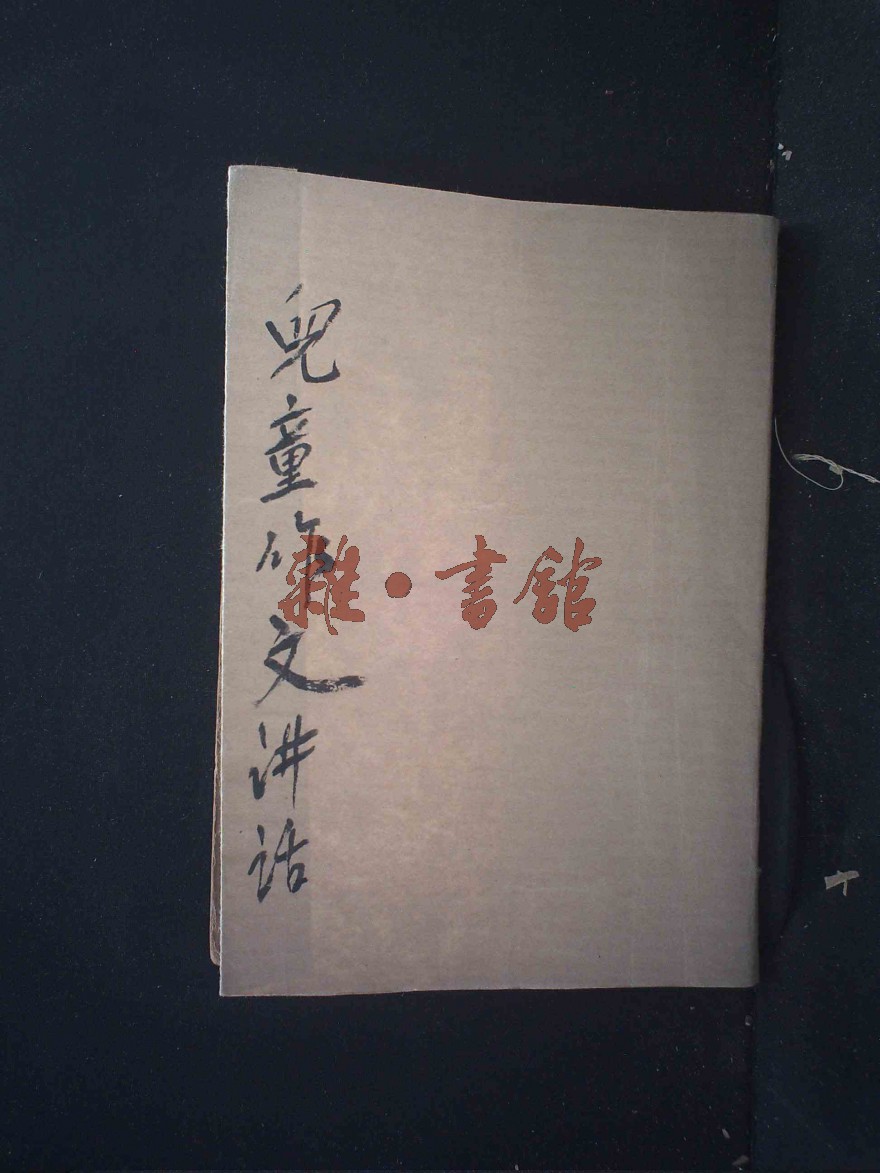 兒童作文讲话
雜·書館